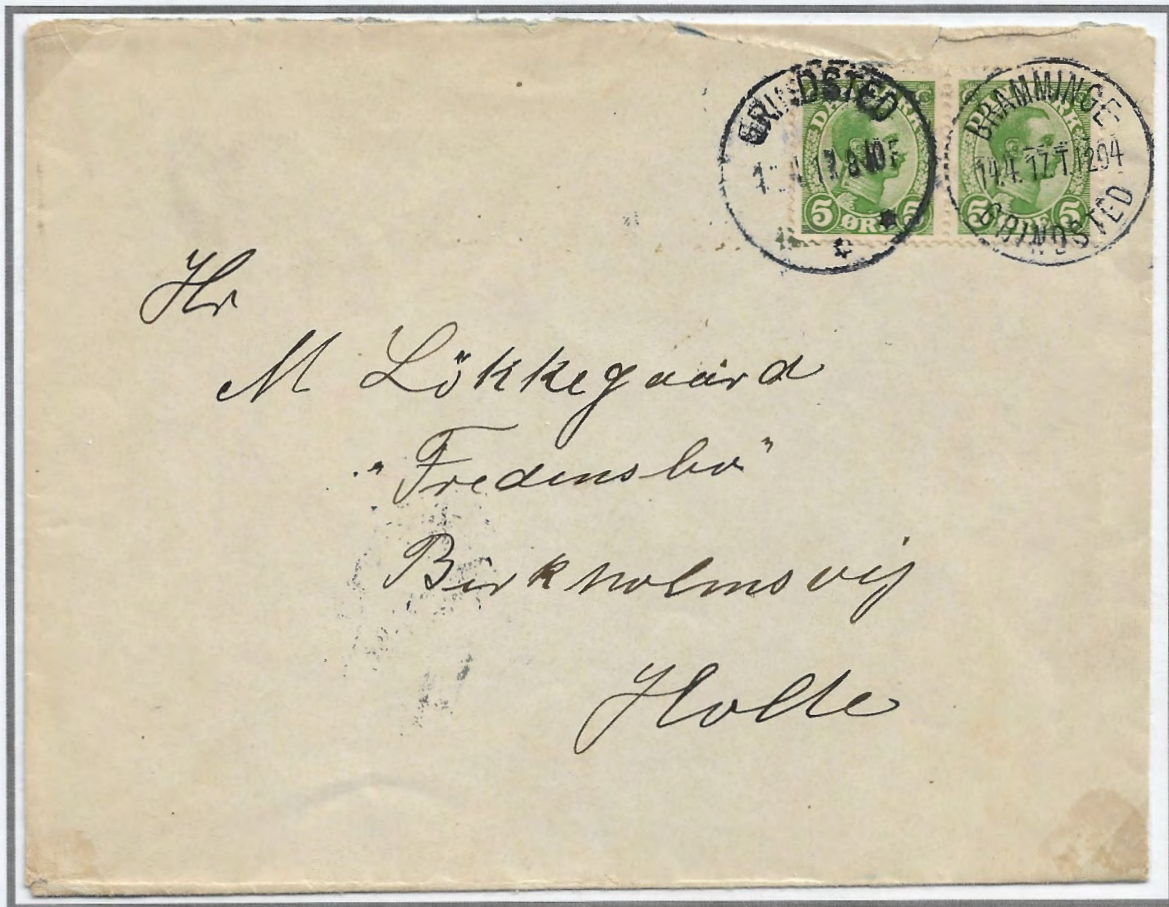 GRINDSTED
BRAMMINGE-
14.4.17.T.1204
GRINDSTED
5 ØRE 5
5 ØRE 5
Hr
M Lökkegaard
"Fredensbo"
Birkholmsvej
Holte